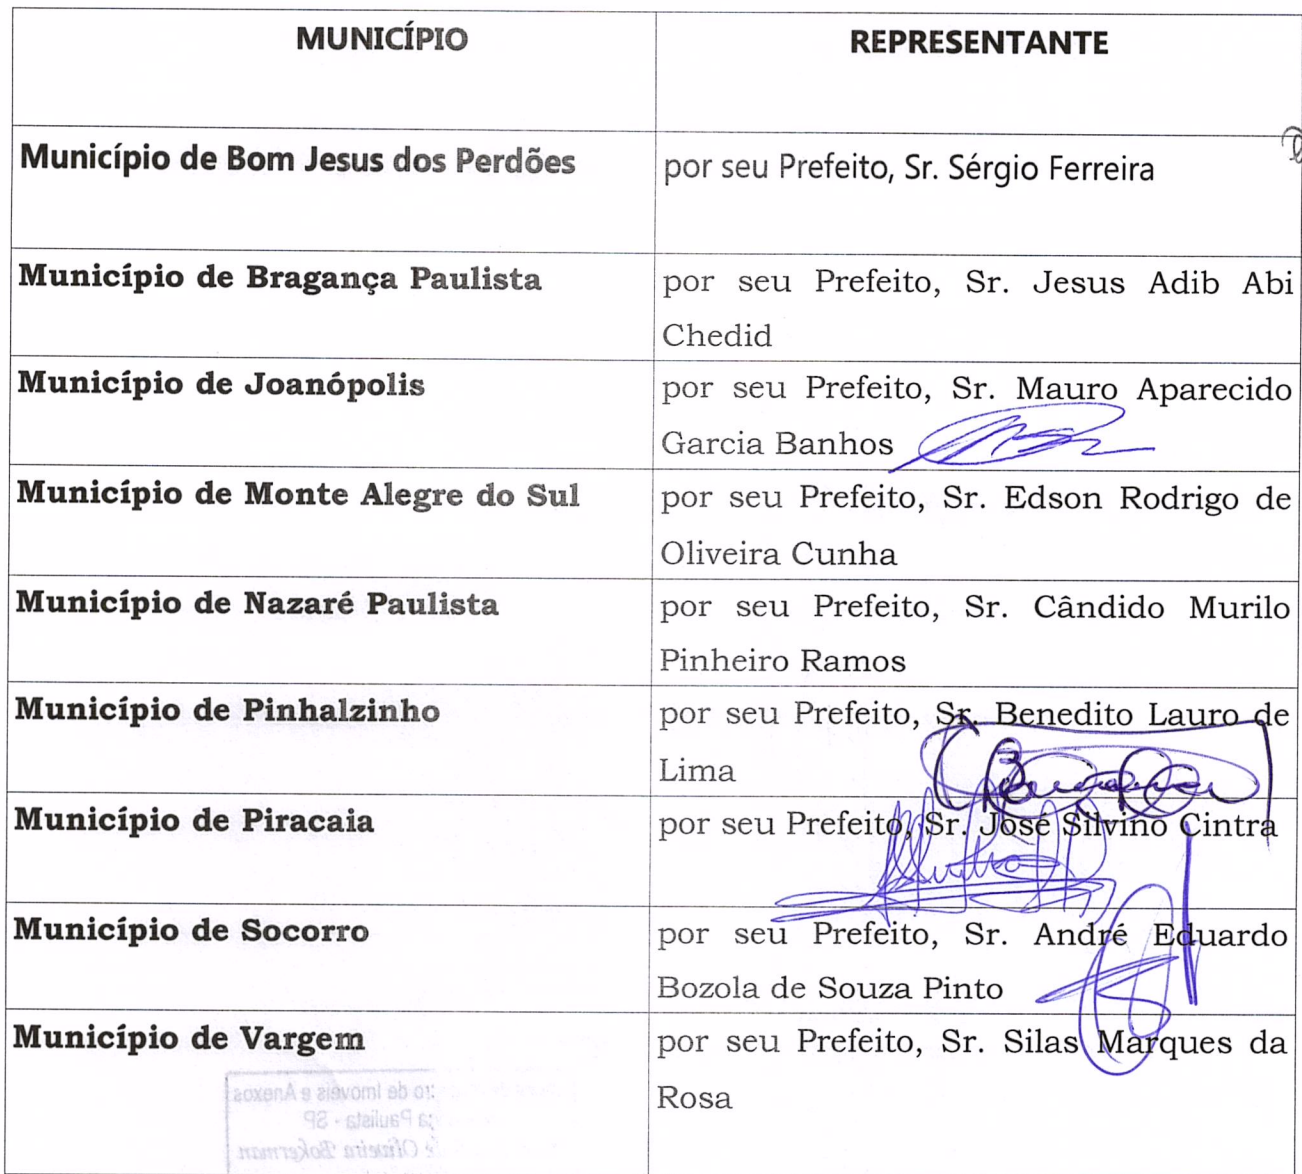 MUNICÍPIO REPRESENTANTE
Município de Bom Jesus dos Perdões por seu Prefeito, Sr. Sérgio Ferreira
Município de Bragança Paulista por seu Prefeito, Sr. Jesus Adib Abi
Chedid
Município de Joanópolis por seu Prefeito, Sr. Mauro Aparecido
Garcia Banhos
Município de Monte Alegre do Sul por seu Prefeito, Sr. Edson Rodrigo de
Oliveira Cunha
Município de Nazaré Paulista por seu Prefeito, Sr. Cândido Murilo
Pinheiro Ramos
Município de Pinhalzinho por seu Prefeito, Sr. Benedito Lauro de
Lima
Município de Piracaia por seu Prefeito, Sr. José Silvino Cintra
Município de Socorro por seu Prefeito, Sr. André Eduardo
Bozola de Souza Pinto
Município de Vargem por seu Prefeito, Sr. Silas Marques da
Rosa
de Imoveis e Anexos
Paulista - SP
Oliveira Bokerman